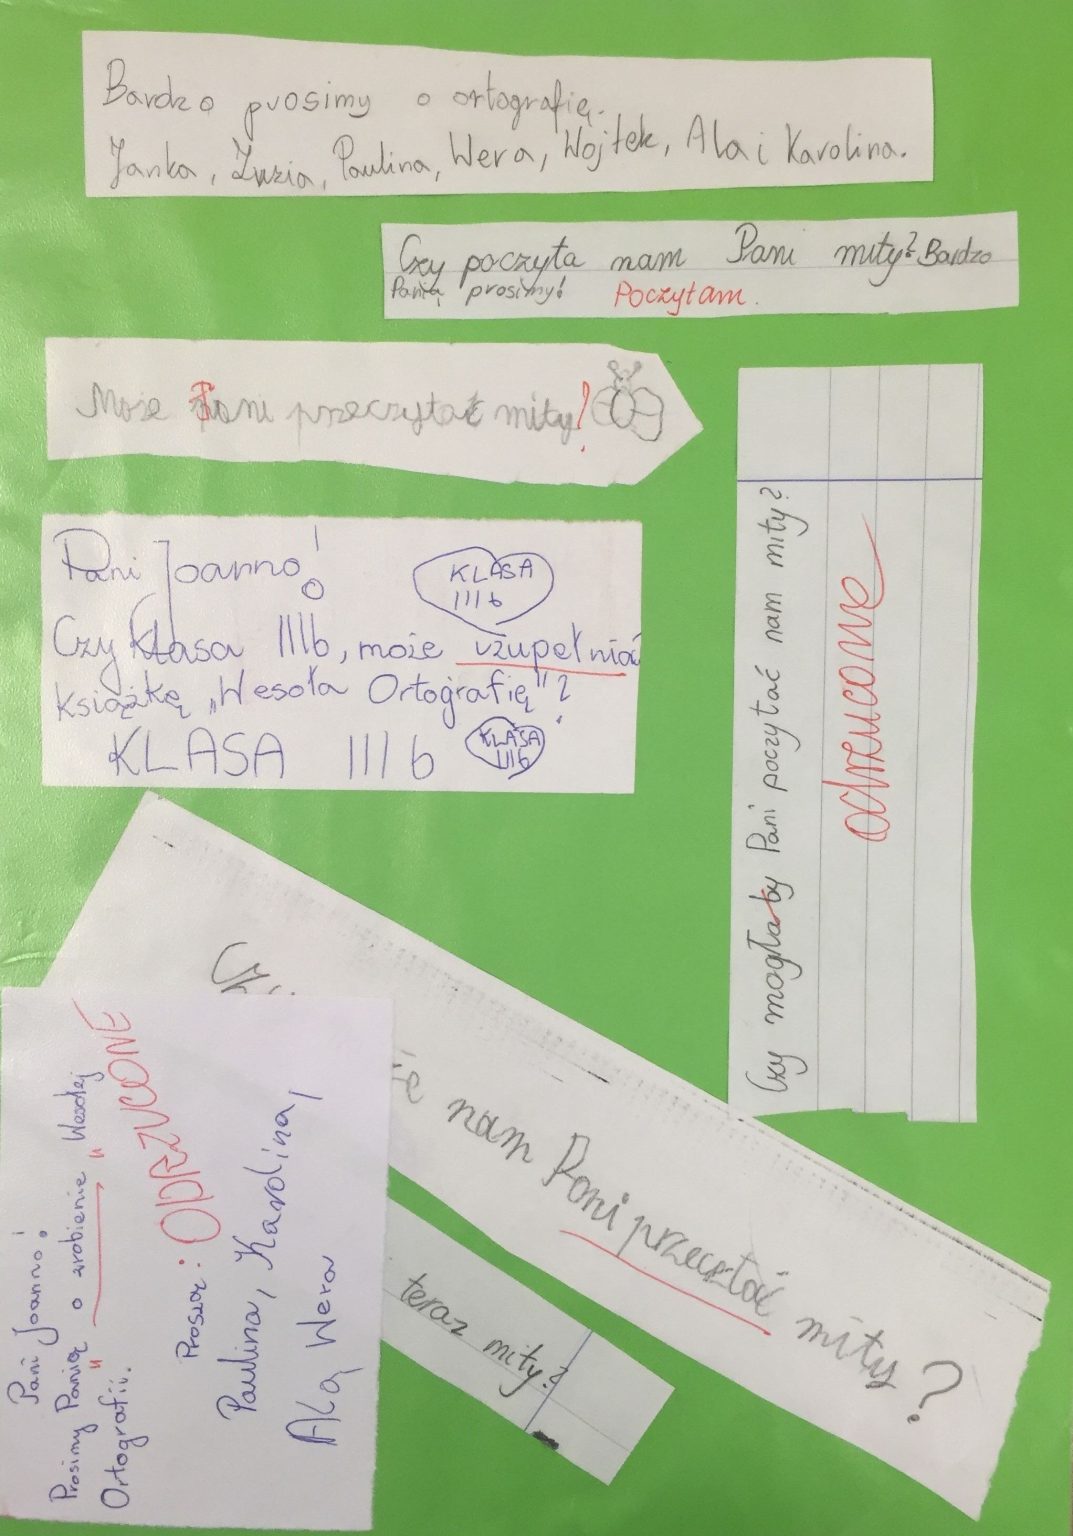 Bardzo prosimy o ortografię.
Janka, Zuzia, Paulina, Wera, Wojtek, Ala i Karolina.
Czy poczyta nam Pani mity? Bardzo
Panią prosimy!
Poczytam.
Może Pani przeczytać mity!
Pani Joanno!
KLASA
III b
Czy klasa IIIb, może uzupełniać
książkę „Wesoła Ortografię"?
KLASA III b
KLASA
IIIb
Czy mogła by Pani poczytać nam mity?
odrzucone
nam Pani przecztać mity?
teraz mity?
Pani Joanno!
Prosimy Panią o zrobienie „Wesołej
Ortografii".
Proszą:
ODRZUCONE
Paulina, Karolina,
Alą Wera